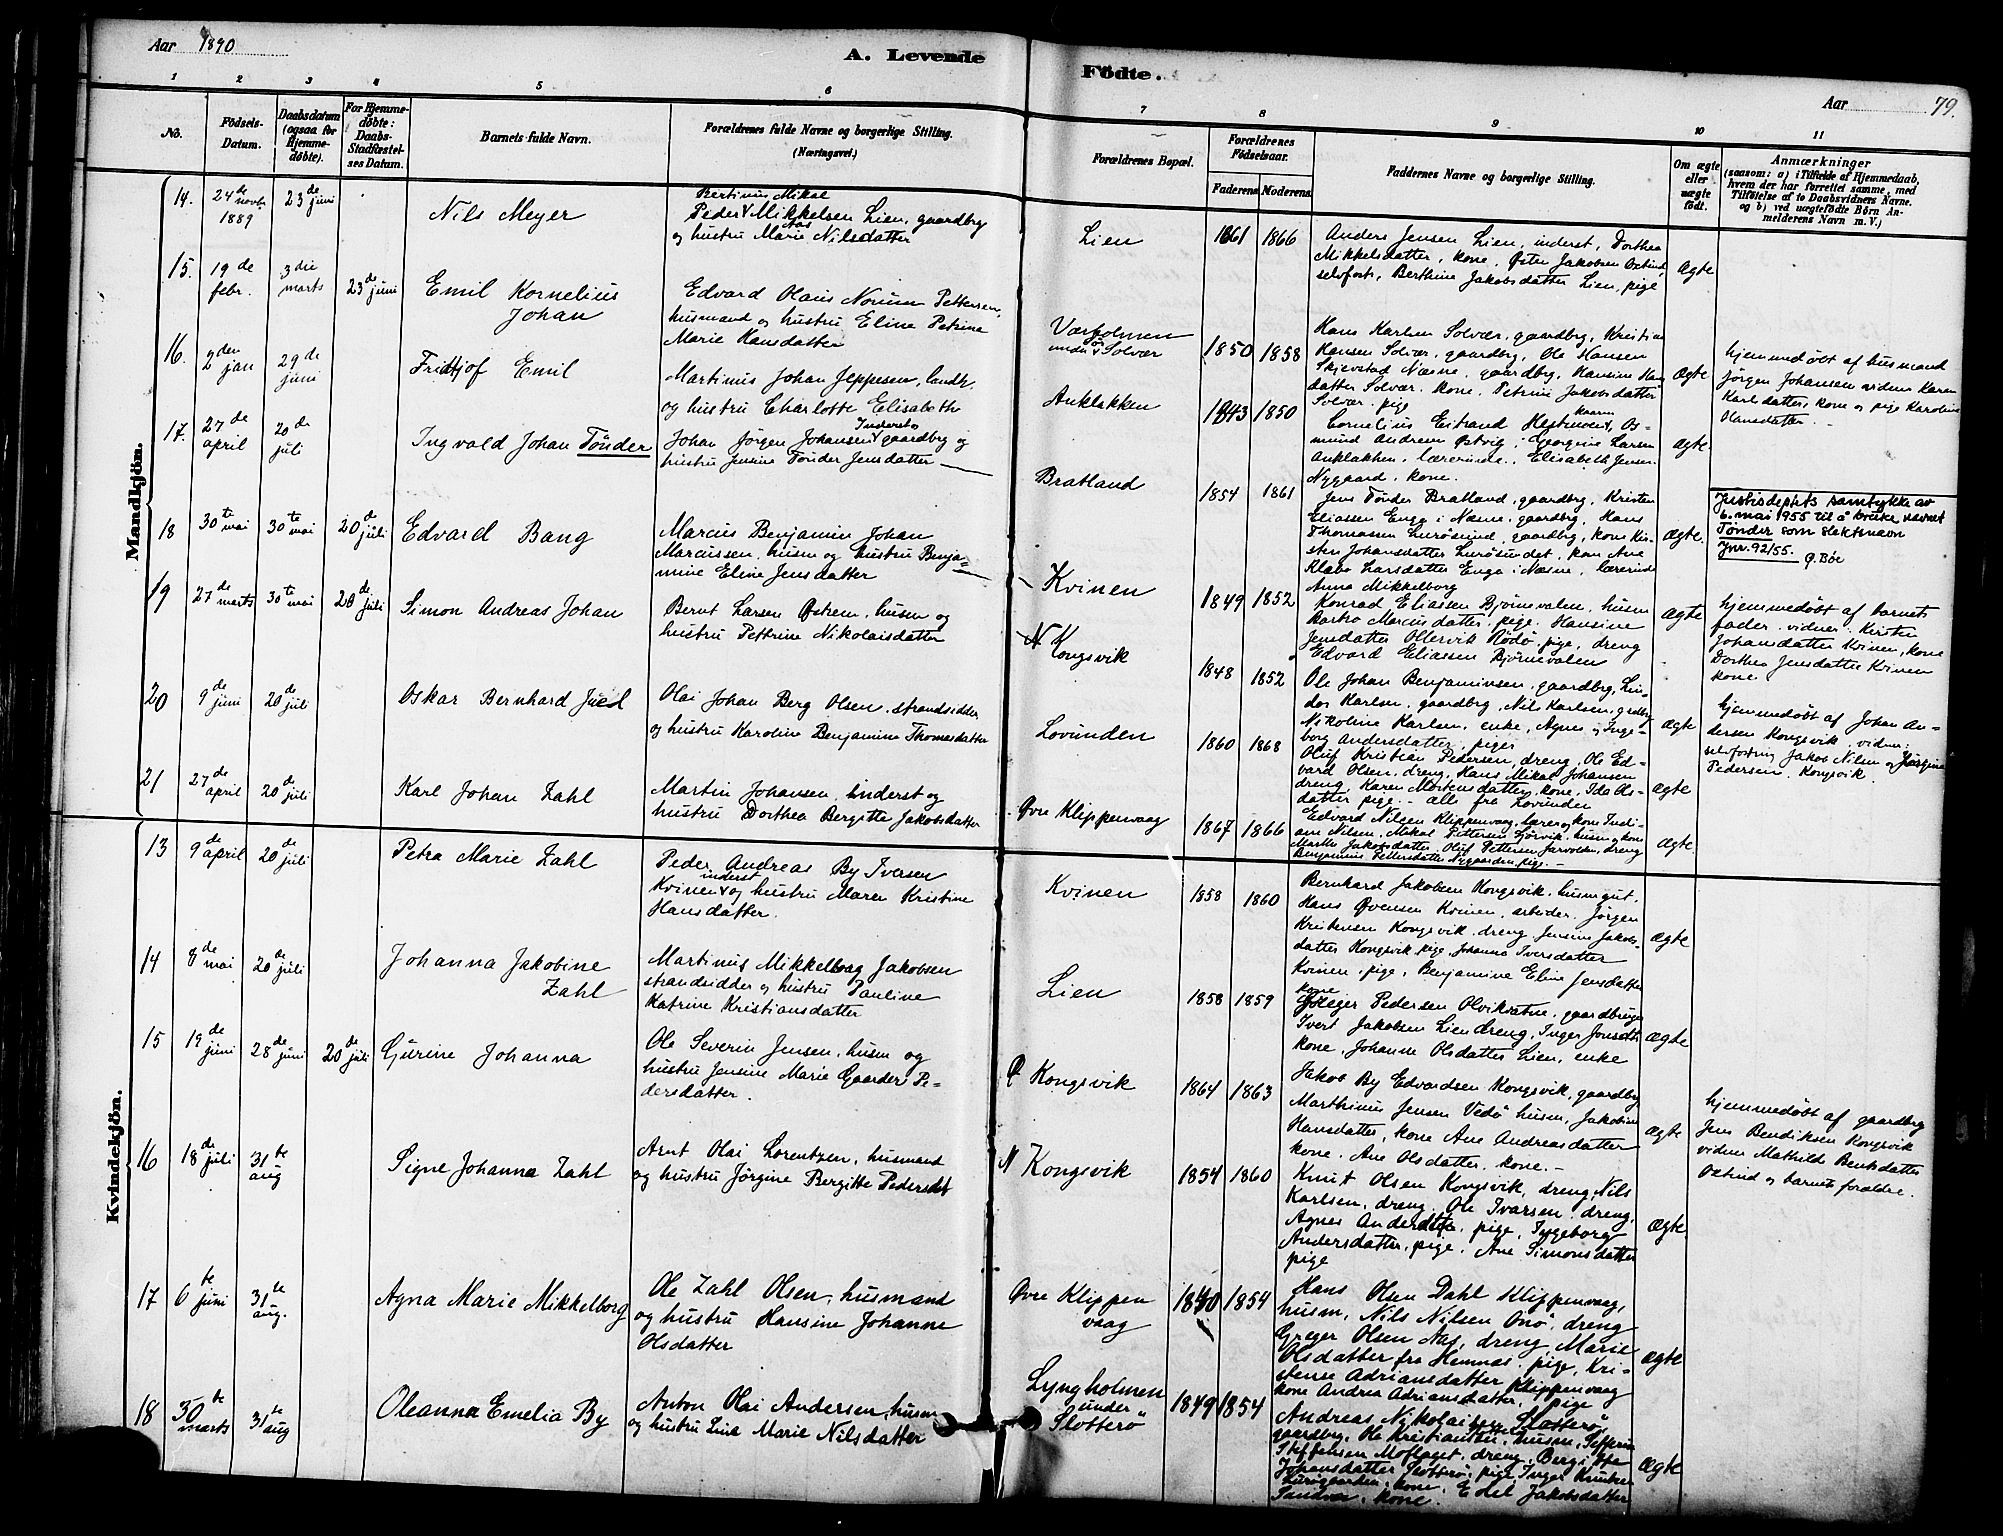 Aar 1890
A. Levende
Födte.
Aar
79.
1 2 3 4 5 6
7 8 9 10 11
No.
Födsels-
Datum.
Daabsdatum
(ogsaa for
Hjemme-
döbte).
For Hjemme-
döbte:
Daabs-
Stadfæstel-
ses Datum.
Barnets fulde Navn.
Forældrenes fulde Navne og borgerlige Stilling.
(Næringsvei.)
Forældrenes Bopæl.
Forældrenes
Födselsaar.
Faderens. Moderens.
Faddernes Navne og borgerlige Stilling.
Om ægte
eller
uægte
födt.
Anmærkninger
(saasom: a) i Tilfælde af Hjemmedaab,
hvem der har forrettet samme, med
Tilföielse af to Daabsvidners Navne.
og b) ved uægtefödte Börn An-
melderens Navn m. V.)
Mandkjön.
14. 24de novbr 1889
23de juni
Nils Meyer
Bertinus Mikal
Peder Mikkelsen Lien, gaardbrg
og hustru Marie Aas Nilsdatter
Lien
1861 1866
Anders Jensen Lien, inderst, Dorthea
Mikkelsdatter, kone, Øster Jakobsen Oxtind,
selvfost, Berthine Jakobsdatter Lien, pige
Ægte
15. 19de febr.
3die marts
23de juni
Emil Kornelius
Johan
Edvard Olaus Norum Pettersen,
husmand og hustru Eline Petrine
Marie Hansdatter
Værholmen
under Solvær
1850 1858
Hans Karlsen Solvær, gaardbrg, Kristian
Hansen Solvær, gaardbrg, Ole Hansen
Skjevstad Næsne, gaardbrg, Hansine Han
datter Solvær, kone, Petrine Jakobsdatter
Solvær, pige
Ægte
hjemmedøbt af husmand
Jörgen Johansen vidner Karen
Karlsdatter, kone og pige Karoline
Hansdatter.
16. 2den jan
29de juni
Fridtjof Emil
Martinus Johan Jeppesen, landh.
og hustru Charlotte Elisabeth
Anklakken
1843 1850
Cornelius Estrand Hestmoen, Os-
mund Andreas Østvig, Georgine Larsen
Anklakken, lærerinde, Elisabeth Jensen
Nygaard, kone.
Ægte.
17. 27de april
20de juli
Ingvald Johan Tönder
Johan Jörgen Johansen Inderst gaardbrg og
hustru Jensine Tönder Jensdatter
Bratland
1854 1861
Jens Tönder Bratland, gaardbrg, Kristen
Eliassen Enga i Næsne, gaardbrg, Hans
Thomassen Lurøsund, gaardbrg, kone Kir-
sten Johansdatter Lurøsundet, kone Ane
Klæbo Larsdatter Enga i Næsne, lærerinde
Anna Mikkelborg
Ægte.
Justisdeptets samtykke av
6. mai 1955 til å bruke navnet
Tønder som slektsnavn
Jnr. 92/55. Q. Bøe
18 30te mai
30te mai
20de juli
Edvard Bang
Marcus Benjamin Johan
Marcussen, husm og hustru Benja-
mine Eline Jensdatter
Kvinen
1849 1852
Konrad Eliassen Bjørnevalen, husm
Barbro Marcusdatter, pige, Hansine
Jensdatter Ollervik Rødø, pige, dreng
Edvard Eliassen Bjørnevalen
Ægte
hjemmedøbt af barnets
fader. vidner: Kirsten
Johansdatter Kvinen, kone
Dorthea Jensdatter Kvinen
kone
19 27de marts
30te mai
20de juli
Simon Andreas Johan
Bernt Larsen Østrem, husm og
hustru Pettrine Nikolaisdatter
N Kongsvik
1848 1852
Ole Johan Benjaminsen, gaardbrg, Lin-
dor Karlsen, gaardbrg, Nils Karlsen, grdbrg
Nikoline Karlsen, enke, Agnes og Inge-
borg Andersdatter, piger
Ægte
hjemmedøbt af Johan An-
dersen Kongsvik, vidner:
selvfostring Jakob Nilsen og Jörgine
Pedersen, Kongsvik.
20 9de juni
20de juli
Oskar Bernhard Juel
Olai Johan Berg Olsen, strandsidder
og hustru Karoline Benjamine Thomasdatter
Lovunden
1860 1868
Oluf Kristian Pedersen, dreng, Ole Ed-
vard Olsen, dreng, Hans Mikal Johansen
dreng, Karen Mortensdatter, kone, Ida Ols-
datter pige.- alle fra Lovunden
Ægte
21 27de april
20de juli
Karl Johan Zahl
Martin Johansen, inderst og
hustru Dorthea Bergitte Jakobsdatter
Øvre Klippenvaag
1867 1866
Edvard Nilsen Klippenvaag, lærer og kone Indi-
ane Nilsen, Mikal Pettersen, husm og kone
Marthe Jakobsdatter, Oluf Pettersen, dreng
Benjamine Pettersdatter Nygaarden, pige.-
Ægte.
Kvindekjön.
13 9de april
20de juli
Petra Marie Zahl
Peder Andreas By Iversen
Kvinen inderst og hustru Maren Kristine
Hansdatter.
Kvinen
1858 1860
Bernhard Jakobsen Kongsvik, husmgut.
Hans Øvensen Kvinen, arbeider. Jörgen
Kristensen Kongsvik, dreng, Jensine Jakobs-
datter Kongsvik pige, Johanna Iversdatter
Kvinen, pige, Benjamine Eline Jensdatter
kone
Ægte
14 8de mai
20de juli
Johanna Jakobine
Zahl
Martinus Mikkelborg Jakobsen
strandsidder og hustru Pauline
Katrine Kristiansdatter
Lien
1858 1859
Greger Pedersen Olvikvatne, gaardbruger
Ivert Jakobsen Lien dreng, Inger Jonsdatter
kone, Johanne Olsdatter Lien, enke
Ægte
15 19de juni
28de juni
20de juli
Gurine Johanna
Ole Severin Jensen, husm og
hustru Jensine Marie Gaarder Pe-
dersdatter.
Ø Kongsvik
1864 1863
Jakob By Edvardsen Kongsvik, gaardbg
Marthinus Jensen Vedø husm, Jakobine
Hansdatter, kone Ane Andreasdatter
kone. Ane Olsdatter, kone.-
Ægte
hjemmedøbt af gaardbrg
Jens Bendiksen Kongsvik
vidner Mathilde Bentsdatter
Oxtind og barnets forældre.
16 18de juli
31te aug
Signe Johanna Zahl
Arnt Olai Lorentzen, husmand
og hustru Jørgine Bergitte Pedersdat
N Kongsvik
1854 1860
Knut Olsen Kongsvik, dreng, Nils
Karlsen, dreng, Ole Ivarsen, dreng,
Agnes Andersdatter, pige, Ingeborg
Andersdatter, pige, Ane Simonsdatter
pige
Ægte
17 6te juni
31te aug.
Agna Marie Mikkelborg
Ole Zahl Olsen, husmand
og hustru Hansine Johanne
Olsdatter
Øvre Klippen
vaag
1840 1854
Hans Olsen Dahl Klippenvaag,
husm, Nils Nilsen Onø, dreng
Greger Olsen Aas, dreng, Marie
Olsdatter fra Hemnæs, pige, Kri-
stense Adriansdatter Klippenvaag
kone Andrea Adriansdatter, pige
Ægte
18 30te marts
31te aug
Oleanna Emelia By
Anton Olai Andersen, husm
og hustru Line Marie Nilsdatter
Lyngholmen
under
Slotterø
1849 1854
Andreas Nikolaisen Slotterø,
gaardbg, Ole Kristiansen, husm, Sefferin
Steffensen Moflaget, dreng, Bergitte
Johansdatter Slotterø, pige, Inger Knutsen
Lurøgaarden, kone, Edel Jakobsdatter
kone.
Ægte